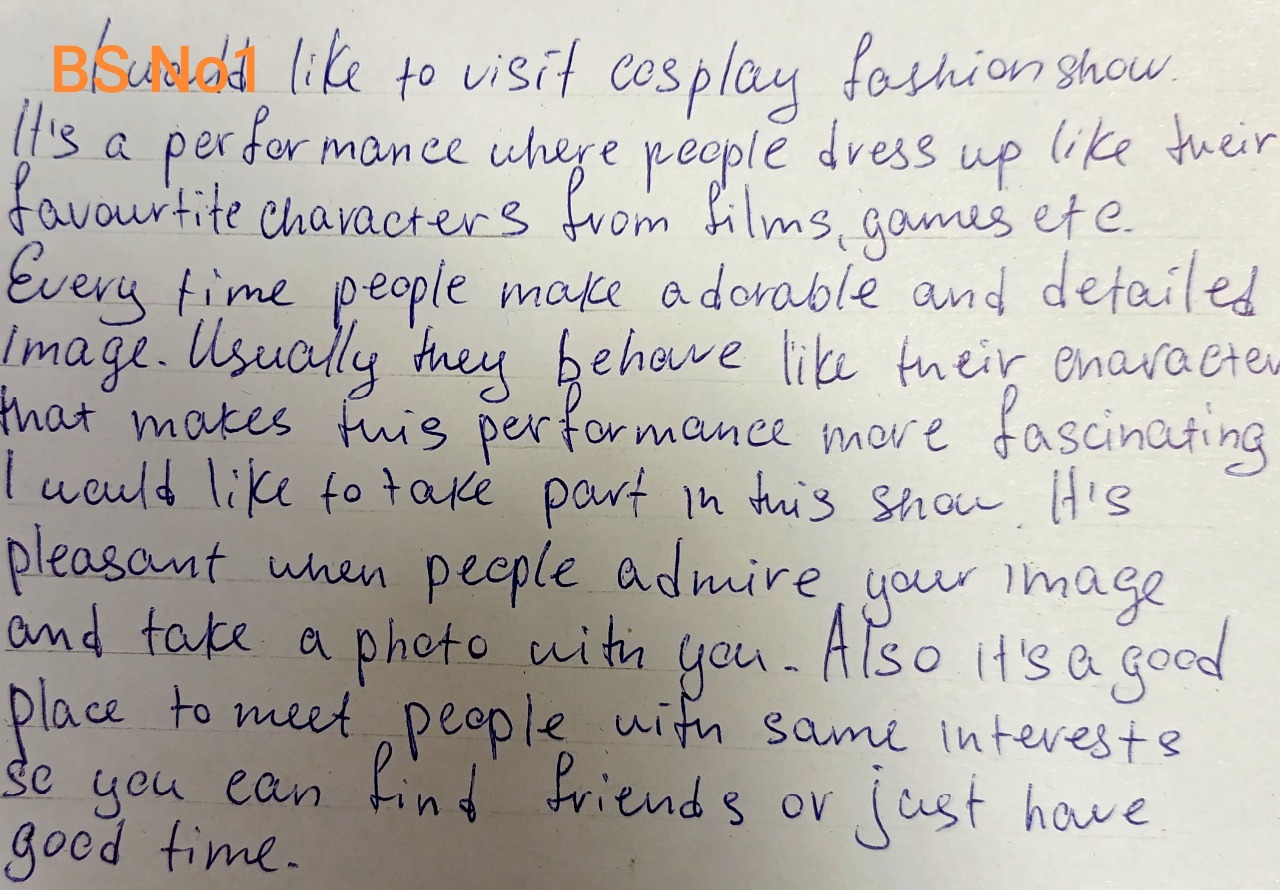 BS No1
I would like to visit cosplay fashion show.
It's a performance where people dress up like their
favourtite characters from films, games etc.
Every time people make adorable and detailed
image. Usually they behave like their character
that makes this performance more fascinating
I would like to take part in this show. It's
pleasant when people admire your image
and take a photo with you. Also it's a good
place to meet people with same interests
so you can find friends or just have
good time.